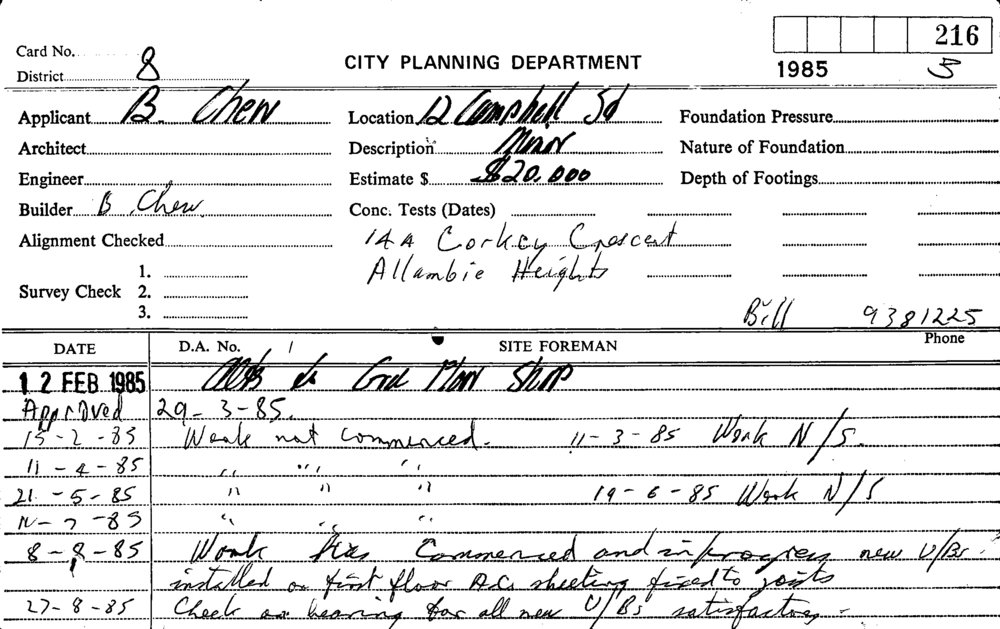 216
Card No.
District 8
CITY PLANNING DEPARTMENT
1985 5
Applicant B. Chew
Location 12 Campbell Sd
Foundation Pressure
Architect
Description Minor
Nature of Foundation
Engineer
Estimate $ $20,000
Depth of Footings
Builder B. Chew.
Conc. Tests (Dates)
Alignment Checked
14A Corkey Crescent
Allambie Heights
Survey Check
1.
2.
3.
Bill 9381225
Phone
DATE D.A. No. / SITE FOREMAN
12 FEB 1985 to Grd Floor Shop
Approved 29-3-85.
15-2-85 Work not commenced. 11-3-85 Work N/S.
11-4-85 " " "
21-5-85 " " " 19-6-85 Work N/S
-7-85 " " "
8-8-85 Work has Commenced and in progress new U/Bs
installed on first floor A.C. sheeting fixed to joists
27-8-85 Check on bearing for all new U/Bs satisfactory -